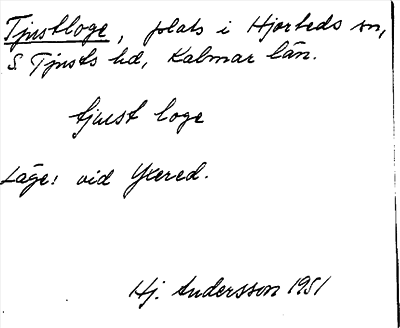 Tjustloge, plats i Hjorteds sn,
S. Tjusts hd, Kalmar län.
tjust loge
Läge: vid Yxered.
Hj. Andersson 1951